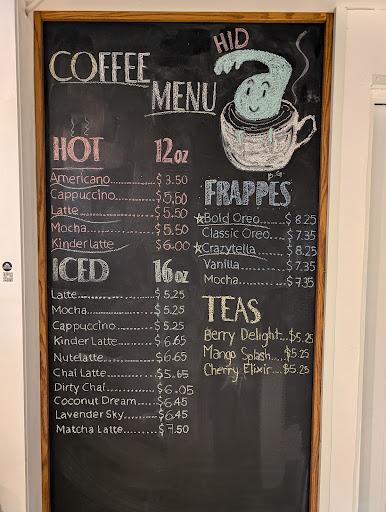 COFFEE
MENU
HID
HOT 12oz
Americano..........$3.50
Cappuccino........$5.50
Latte...................$5.50
Mocha................$5.50
Kinderlatte..........$6.00
ICED 16oz
Latte..................$5.25
Mocha...............$5.25
Cappuccino.......$5.25
Kinder Latte.......$6.65
Nutelatte...........$6.65
Chai Latte..........$5.65
Dirty Chai..........$6.05
Coconut Dream....$6.45
Lavender Sky......$6.45
Matcha Latte......$7.50
FRAPPES
Bold Oreo......$8.25
Classic Oreo....$7.35
Crazytella.......$8.25
Vanilla............$7.35
Mocha............$7.35
TEAS
Berry Delight...$5.25
Mango Splash...$5.25
Cherry Elixir....$5.25